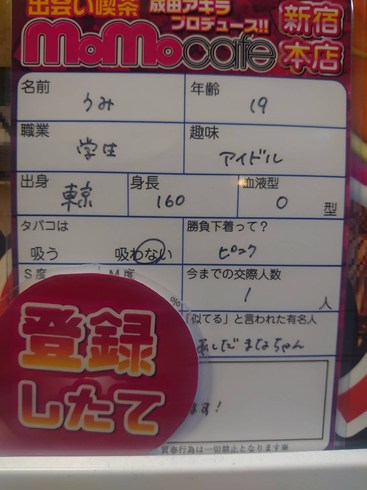 出会い喫茶 成田アキラ
プロデュース!!
MoMocafe 新宿本店
名前 うみ 年齢 19
職業 学生 趣味 アイドル
出身 東京 身長 160 血液型 O 型
タバコは 吸う 吸わない 勝負下着って? ピンク
S度 M度 今までの交際人数 1 人
「似てる」と言われた有名人
あしだまなちゃん
登録
したて
ます!
買春行為は一切禁止となります※